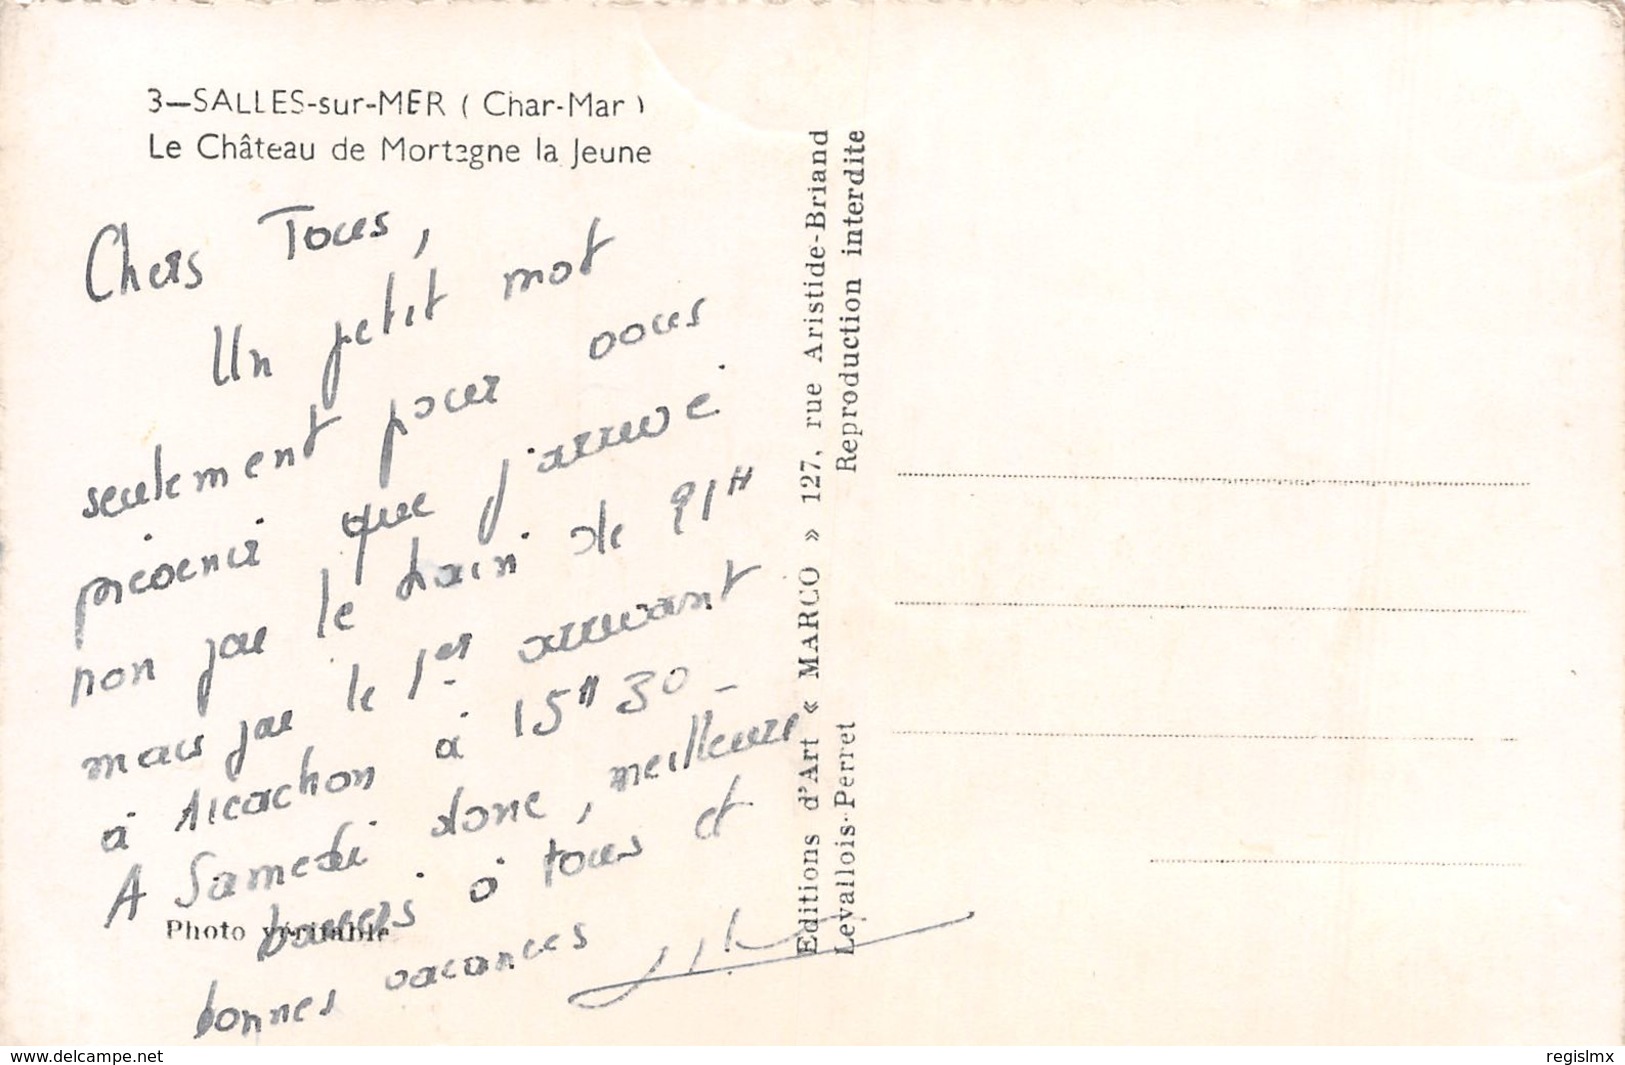 3—SALLES-sur-MER ( Char-Mar )
Le Château de Mortagne la Jeune
Chers Tous,
Un petit mot
seulement pour vous
prévenir que j'arrive
non par le train de 21H
mais par le 1er arrivant
à Arcachon à 15H30 -
A Samedi donc, meilleurs
baisers à tous et
bonnes vacances
Photo véritable
Editions d'Art « MARCO » 127, rue Aristide-Briand
Levallois-Perret Reproduction interdite
www.delcampe.net
regislmx